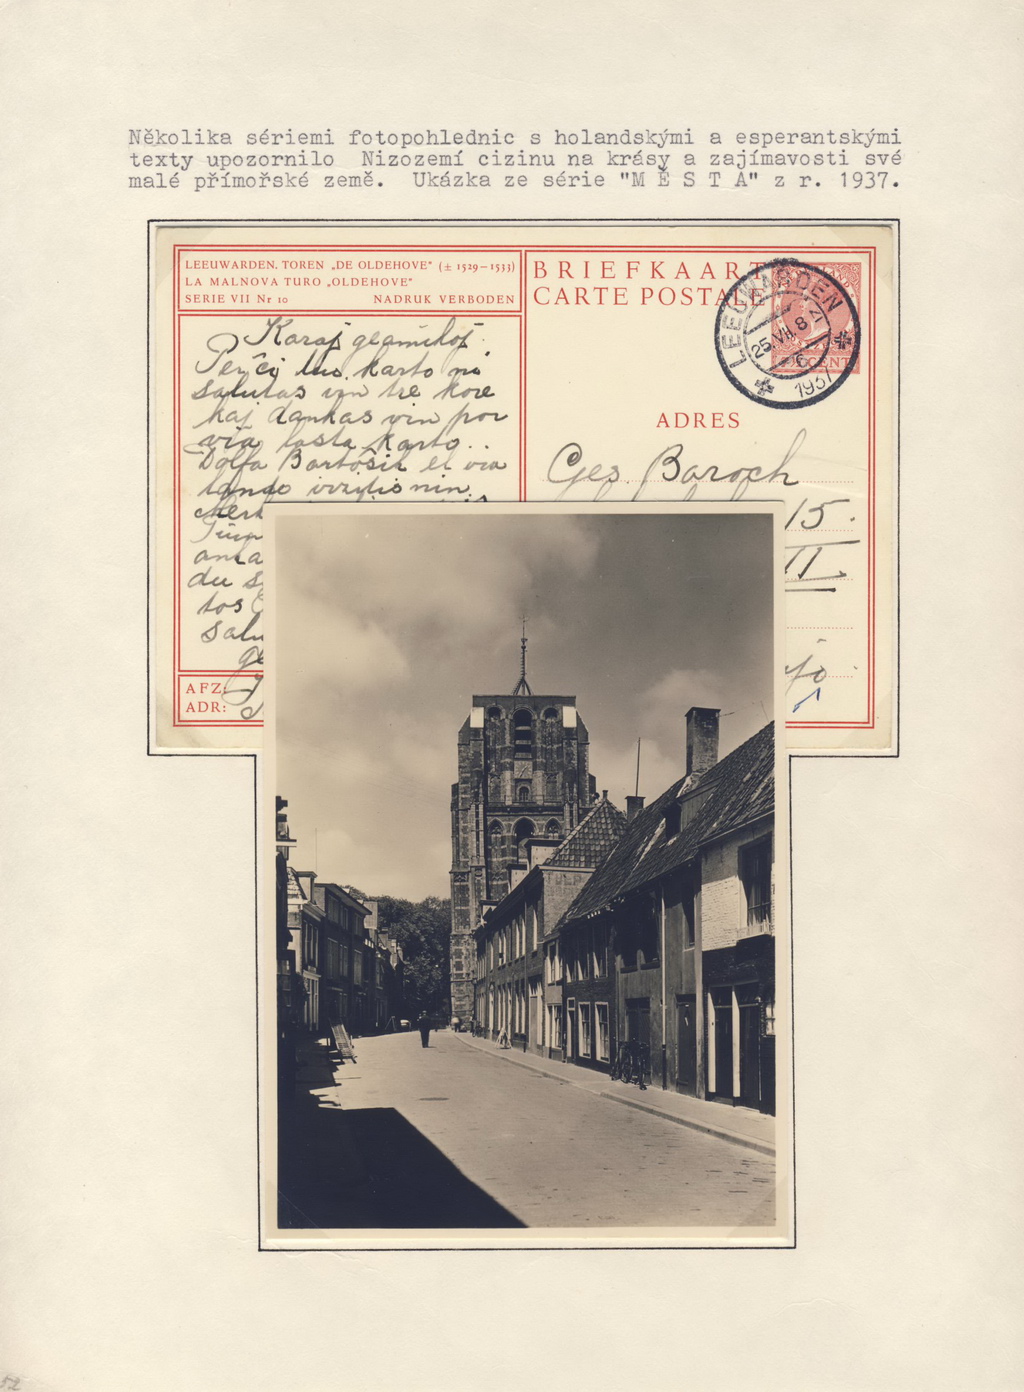 Několika sériemi fotopohlednic s holandskými a esperantskými
texty upozornilo Nizozemí cizinu na krásy a zajímavosti své
malé přímořské země. Ukázka ze série "M Ě S T A" z r. 1937.
LEEUWARDEN. TOREN „DE OLDEHOVE" (± 1529–1533)
LA MALNOVA TURO „OLDEHOVE"
SERIE VII Nr 10 NADRUK VERBODEN
BRIEFKAART
CARTE POSTALE
LEEUWARDEN
25.VII.8
1937
CENT
Karaj geamikoj.
Per ĉi tiu karto ni
salutas vin tre kore
kaj dankas vin por
via lasta karto..
Dolfa Bartošik el via
lando vizitis nin.
ADRES
Ges. Baroch
15.
II
du
tos
salu
AFZ:
ADR:
52